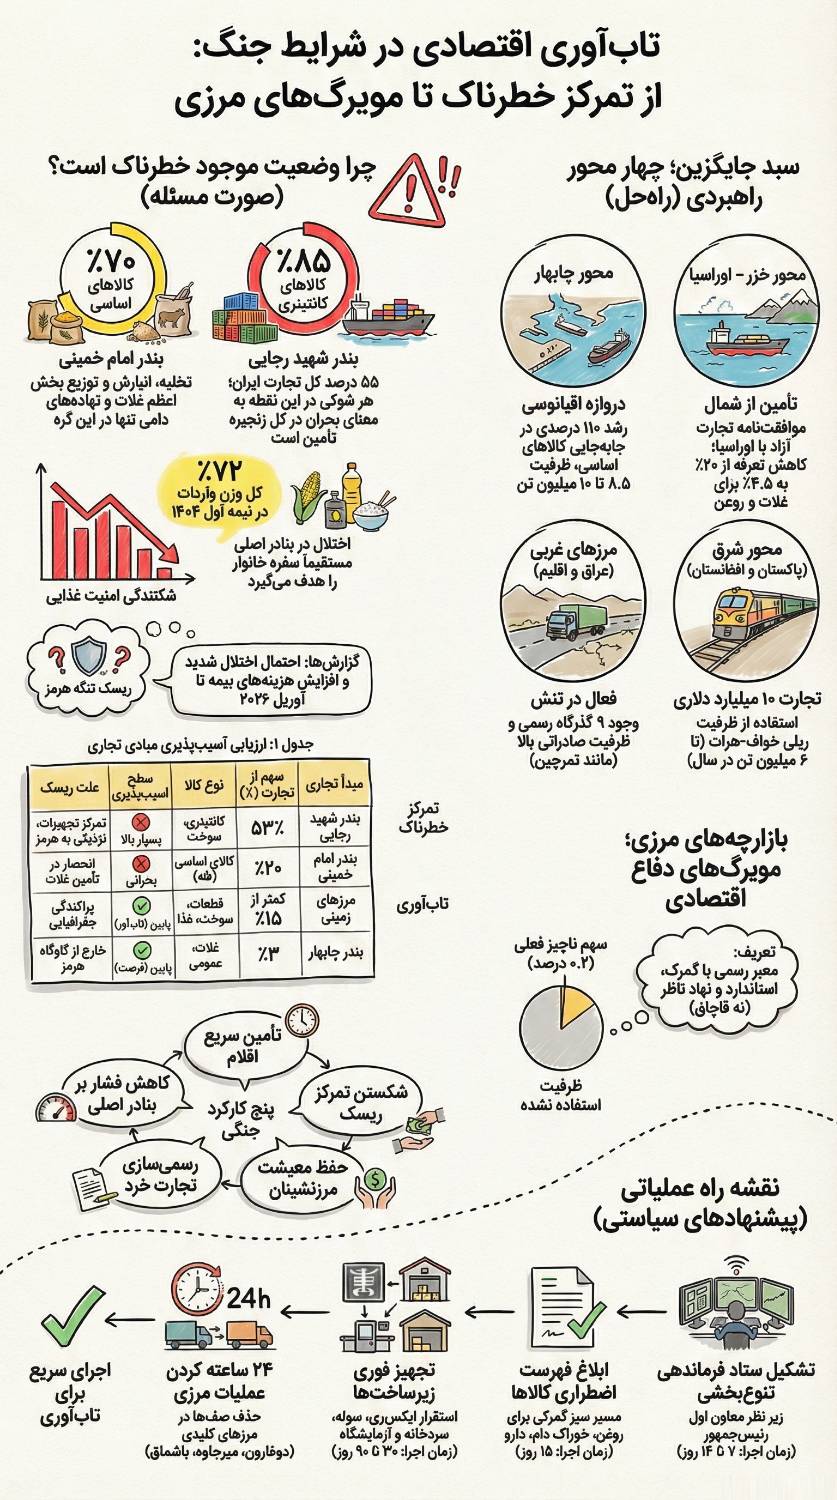 تاب‌آوری اقتصادی در شرایط جنگ:
از تمرکز خطرناک تا مویرگ‌های مرزی
سبد جایگزین؛ چهار محور
راهبردی (راه‌حل)
محور خزر - اوراسیا
تأمین از شمال
موافقت‌نامه تجارت
آزاد با اوراسیا؛
کاهش تعرفه از ۲۰٪
به ۴.۵٪ برای
غلات و روغن
محور چابهار
دروازه اقیانوسی
رشد ۱۱۰ درصدی در
جابه‌جایی کالاهای
اساسی، ظرفیت
۸.۵ تا ۱۰ میلیون تن
محور شرق
(پاکستان و افغانستان)
تجارت ۱۰ میلیارد دلاری
استفاده از ظرفیت
ریلی خواف-هرات (تا
۶ میلیون تن در سال)
مرزهای غربی
(عراق و اقلیم)
فعال در تنش
وجود ۹ گذرگاه رسمی و
ظرفیت صادراتی بالا
(مانند تمرچین)
چرا وضعیت موجود خطرناک است؟
(صورت مسئله)
٪۸۵
کالاهای
کانتینری
بندر شهید رجایی
۵۵ درصد کل تجارت ایران؛
هر شوکی در این نقطه به
معنای بحران در کل زنجیره
تأمین است
٪۷۰
کالاهای
اساسی
بندر امام خمینی
تخلیه، انبارش و توزیع بخش
اعظم غلات و نهاده‌های
دامی تنها در این گره
٪۷۲
کل وزن واردات
در نیمه اول ۱۴۰۴
اختلال در بنادر اصلی
مستقیماً سفره خانوار
را هدف می‌گیرد
شکنندگی امنیت غذایی
ریسک تنگه هرمز
گزارش‌ها: احتمال اختلال شدید
و افزایش هزینه‌های بیمه تا
آوریل ۲۰۲۶
جدول ۱: ارزیابی آسیب‌پذیری مبادی تجاری
مبدأ تجاری
سهم از
تجارت (٪)
نوع کالا
سطح
آسیب‌پذیری
علت ریسک
بندر شهید
رجایی
۵۳٪
کانتینری،
سوخت
بسیار بالا
تمرکز تجهیزات،
نزدیکی به هرمز
بندر امام
خمینی
٪۲۰
کالای اساسی
بحرانی
انحصار در
تأمین غلات
مرزهای
زمینی
کمتر از
٪۱۵
قطعات،
سوخت، غذا
پایین (تاب‌آور)
پراکندگی
جغرافیایی
بندر چابهار
٪۳
غلات،
عمومی
پایین (فرصت)
خارج از گلوگاه
هرمز
تمرکز
خطرناک
تاب‌آوری
بازارچه‌های مرزی؛
مویرگ‌های دفاع
اقتصادی
تعریف:
معبر رسمی با گمرک،
استاندارد و نهاد ناظر
(نه قاچاق)
سهم ناچیز فعلی
(۰.۲ درصد)
ظرفیت
استفاده نشده
پنج کارکرد
جنگی
تأمین سریع
اقلام
شکستن تمرکز
ریسک
حفظ معیشت
مرزنشینان
رسمی‌سازی
تجارت خرد
کاهش فشار بر
بنادر اصلی
نقشه راه عملیاتی
(پیشنهادهای سیاستی)
تشکیل ستاد فرماندهی
تنوع‌بخشی
زیر نظر معاون اول
رئیس‌جمهور
(زمان اجرا: ۷ تا ۱۴ روز)
ابلاغ فهرست
اضطراری کالاها
مسیر سبز گمرکی برای
روغن، خوراک دام، دارو
(زمان اجرا: ۱۵ روز)
تجهیز فوری
زیرساخت‌ها
استقرار ایکس‌ری، سوله،
سردخانه و آزمایشگاه
(زمان اجرا: ۳۰ تا ۹۰ روز)
24h
۲۴ ساعته کردن
عملیات مرزی
حذف صف‌ها در
مرزهای کلیدی
(دوغارون، میرجاوه، باشماق)
اجرای سریع
برای
تاب‌آوری